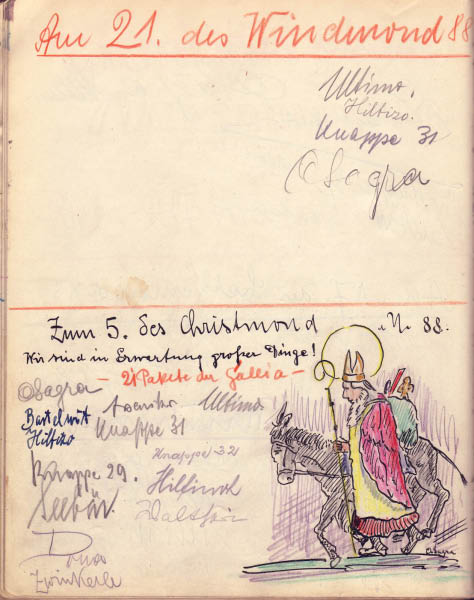 Am 21. des Windmond 88
Ultimo.
Hiltizo.
Knappe 31
Osagra
Zum 5. des Christmond a. U. 88.
Wir sind in Erwartung großer Dinge!
- 21 Pakete der Gallia -
Osagra
Ultimo
Bartelwitt
Hiltizo
Knappe 31
Knappe 32
Knappe 29.
Seebär
Zwinkerle